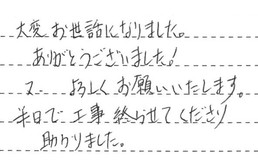 大変お世話になりました。
ありがとうございました!
又、よろしくお願いいたします。
半日で工事終らせてくださり
助かりました。